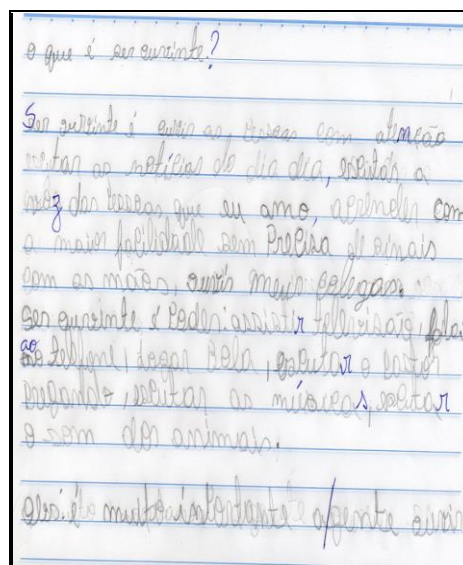 o que é ser ouvinte?
Ser ouvinte é ouvir as pessoas com atenção
as notícias do dia dia, escutar a
voz das pessoas que eu amo, aprender com
a maior facilidade sem precisa de sinais
com as mãos, ouvir meus colegas.
ser ouvinte é poder assistir televisão, falar
ao telefone, jogar bola, escutar o
escutar as músicas, escutar
o som dos animais.
a gente ouvir